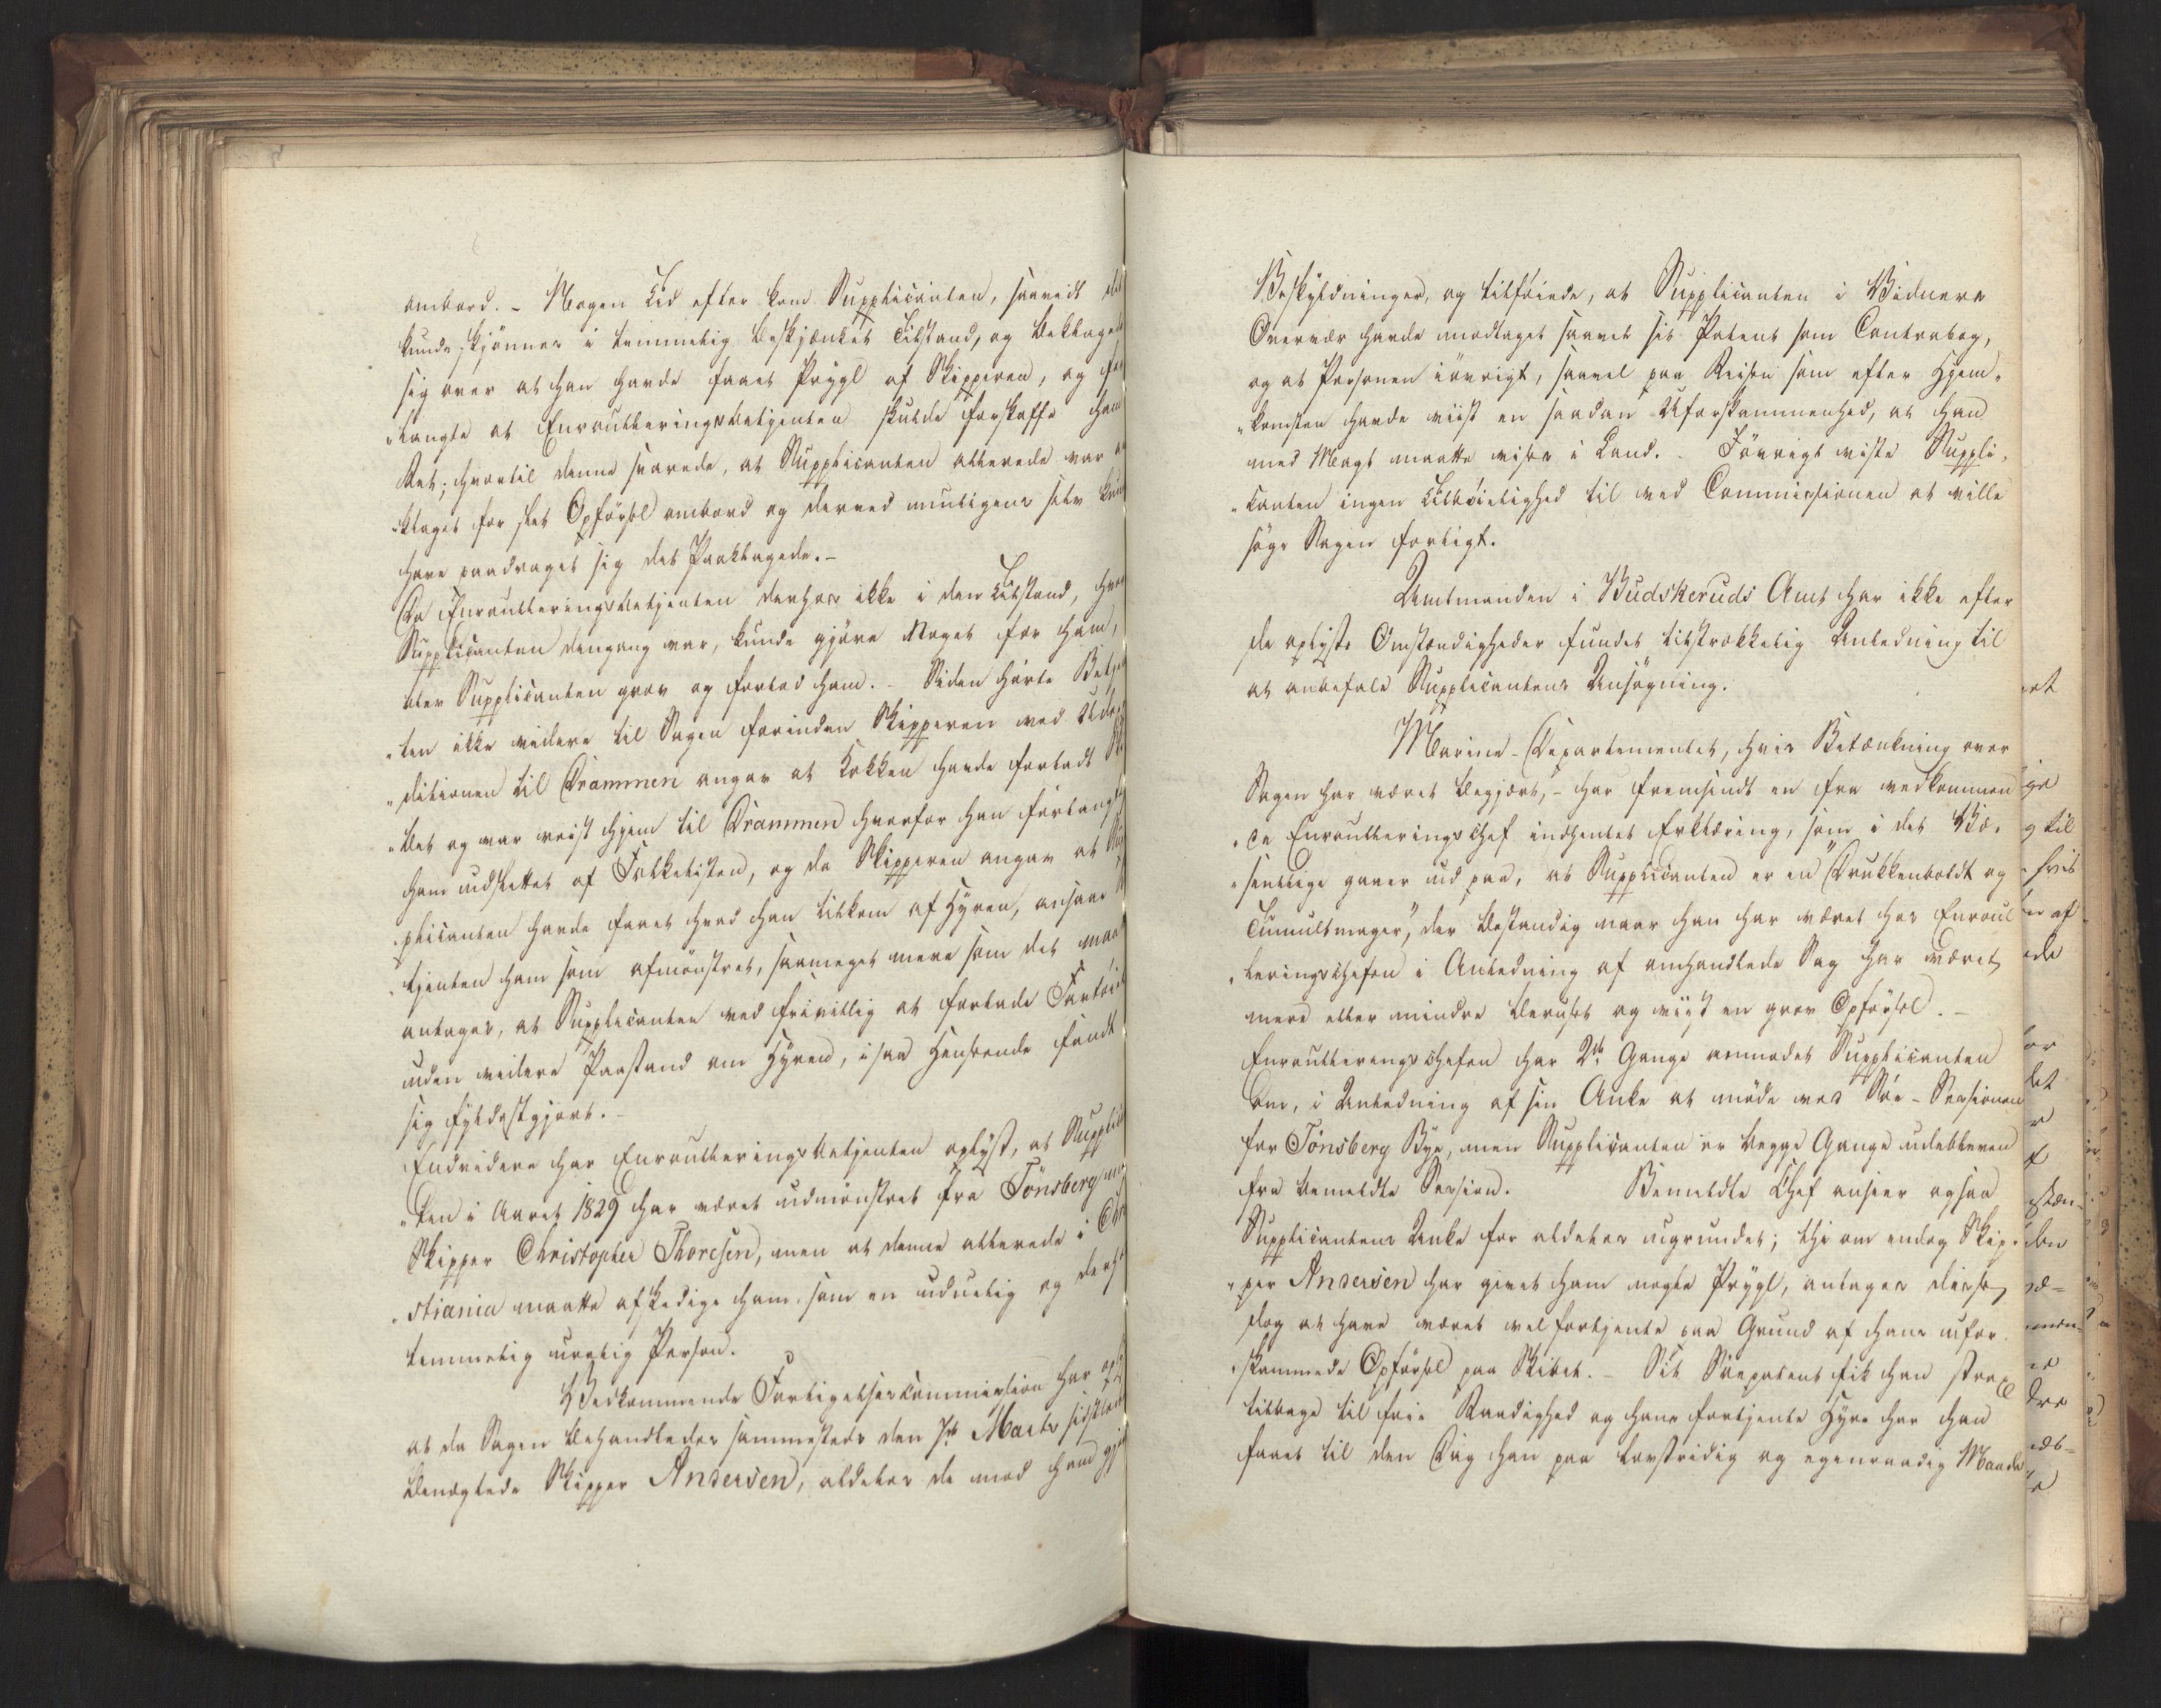 ombord. - Nogen Tid efter kom Supplicanten, saavidt det
kunde skjønnes i temmelig beskjænket Tilstand, og beklagede
sig over at han havde faaet Prygl af Skipperen, og for
"langte at Enroulleringsbetjenten skulde forskaffe ham
Ret; hvortil denne svarede, at Supplicanten allerede var
"klaget for slet Opførsel ombord og derved muligens selv kunde
have paadraget sig det Paaklagede. -
Da Enroulleringsbetjenten derhos ikke i den Tilstand, hvori
Supplicanten dengang var, kunde gjøre Noget for ham,
blev Supplicanten grov og forlod ham. - Siden hørte Betjen
"ten ikke videre til Sagen forinden Skipperen ved
"ditionen til Drammen angav at Kokken havde forladt
"bet og var reist hjem til Drammen hvorfor han forlangte
ham udslettet af Folkelisten, og da Skipperen angav at Sup
"plicanten havde faaet hvad han tilkom af Hyren, ansaae
"tjenten ham som afmønstret, saameget mere som det maatte
antages, at Supplicanten ved frivillig at forlade Fartøiet
uden videre Paastand om Hyren, i saa Henseende fandt
sig fyldestgjort. -
Endvidere har Enroulleringsbetjenten oplyst, at Supplican
"ten i Aaret 1829 har været udmønstret fra Tönsberg med
Skipper Christopher Thoresen, men at denne allerede i Chri
"stiania maatte afskedige ham som en uduelig og derhos
temmelig urolig Person.
Vedkommende Forligelsescommission har oplyst
at da Sagen behandledes sammesteds den 7de Marts sidstleden
benægtede Skipper Andersen, aldeles de mod ham gjorte
Beskyldninger, og tilføiede, at Supplicanten i Vidners
Overvær havde modtaget saavel sit Patent som Contrabog,
og at Personen iøvrigt, saavel paa Reisen som efter Hjem"
"komsten havde viist en saadan Uforskammenhed, at han
med Magt maatte vises i Land. - Iøvrigt viste Suppli"
"canten ingen Tilbøielighed til ved Commissionen at ville
søge Sagen forligt.
Amtmanden i Budskeruds Amt har ikke efter
de oplyste Omstændigheder fundet tilstrækkelig Anledning til
at anbefale Supplicantens Ansøgning.
Marine-Departementet, hvis Betænkning over
Sagen har været begjært, - har fremsendt en fra vedkommen
"de Enroulleringschef indhentet Erklæring, som i det Væ"
"sentlige gaaer ud paa, at Supplicanten er en "Drukkenboldt og
Tumultmager", der bestandig naar han har været hos Enroul
"leringschefen i Anledning af omhandlede Sag har været
mere eller mindre beruset og viist en grov Opførsel. -
Enroulleringschefen har 2de Gange anmodet Supplicanten
om, i Anledning af sin Anke at møde ved Søe-Sessionen
for Tönsberg Bye, men Supplicanten er begge Gange udebleven
fra bemeldte Session. Bemeldte Chef ansees ogsaa
Supplicantens Anke for aldeles ugrundet; thi om endog Skip"
"per Andersen har givet ham nogle Prygl, antages disse
dog at have været velfortjente paa Grund af hans ufor"
"skammede Opførsel paa Skibet. - Sit Søepatent fik han strax
tilbage til frie Raadighed og hans fortjente Hyre har han
faaet til den Dag han paa lovstridig og egenraadig Maade